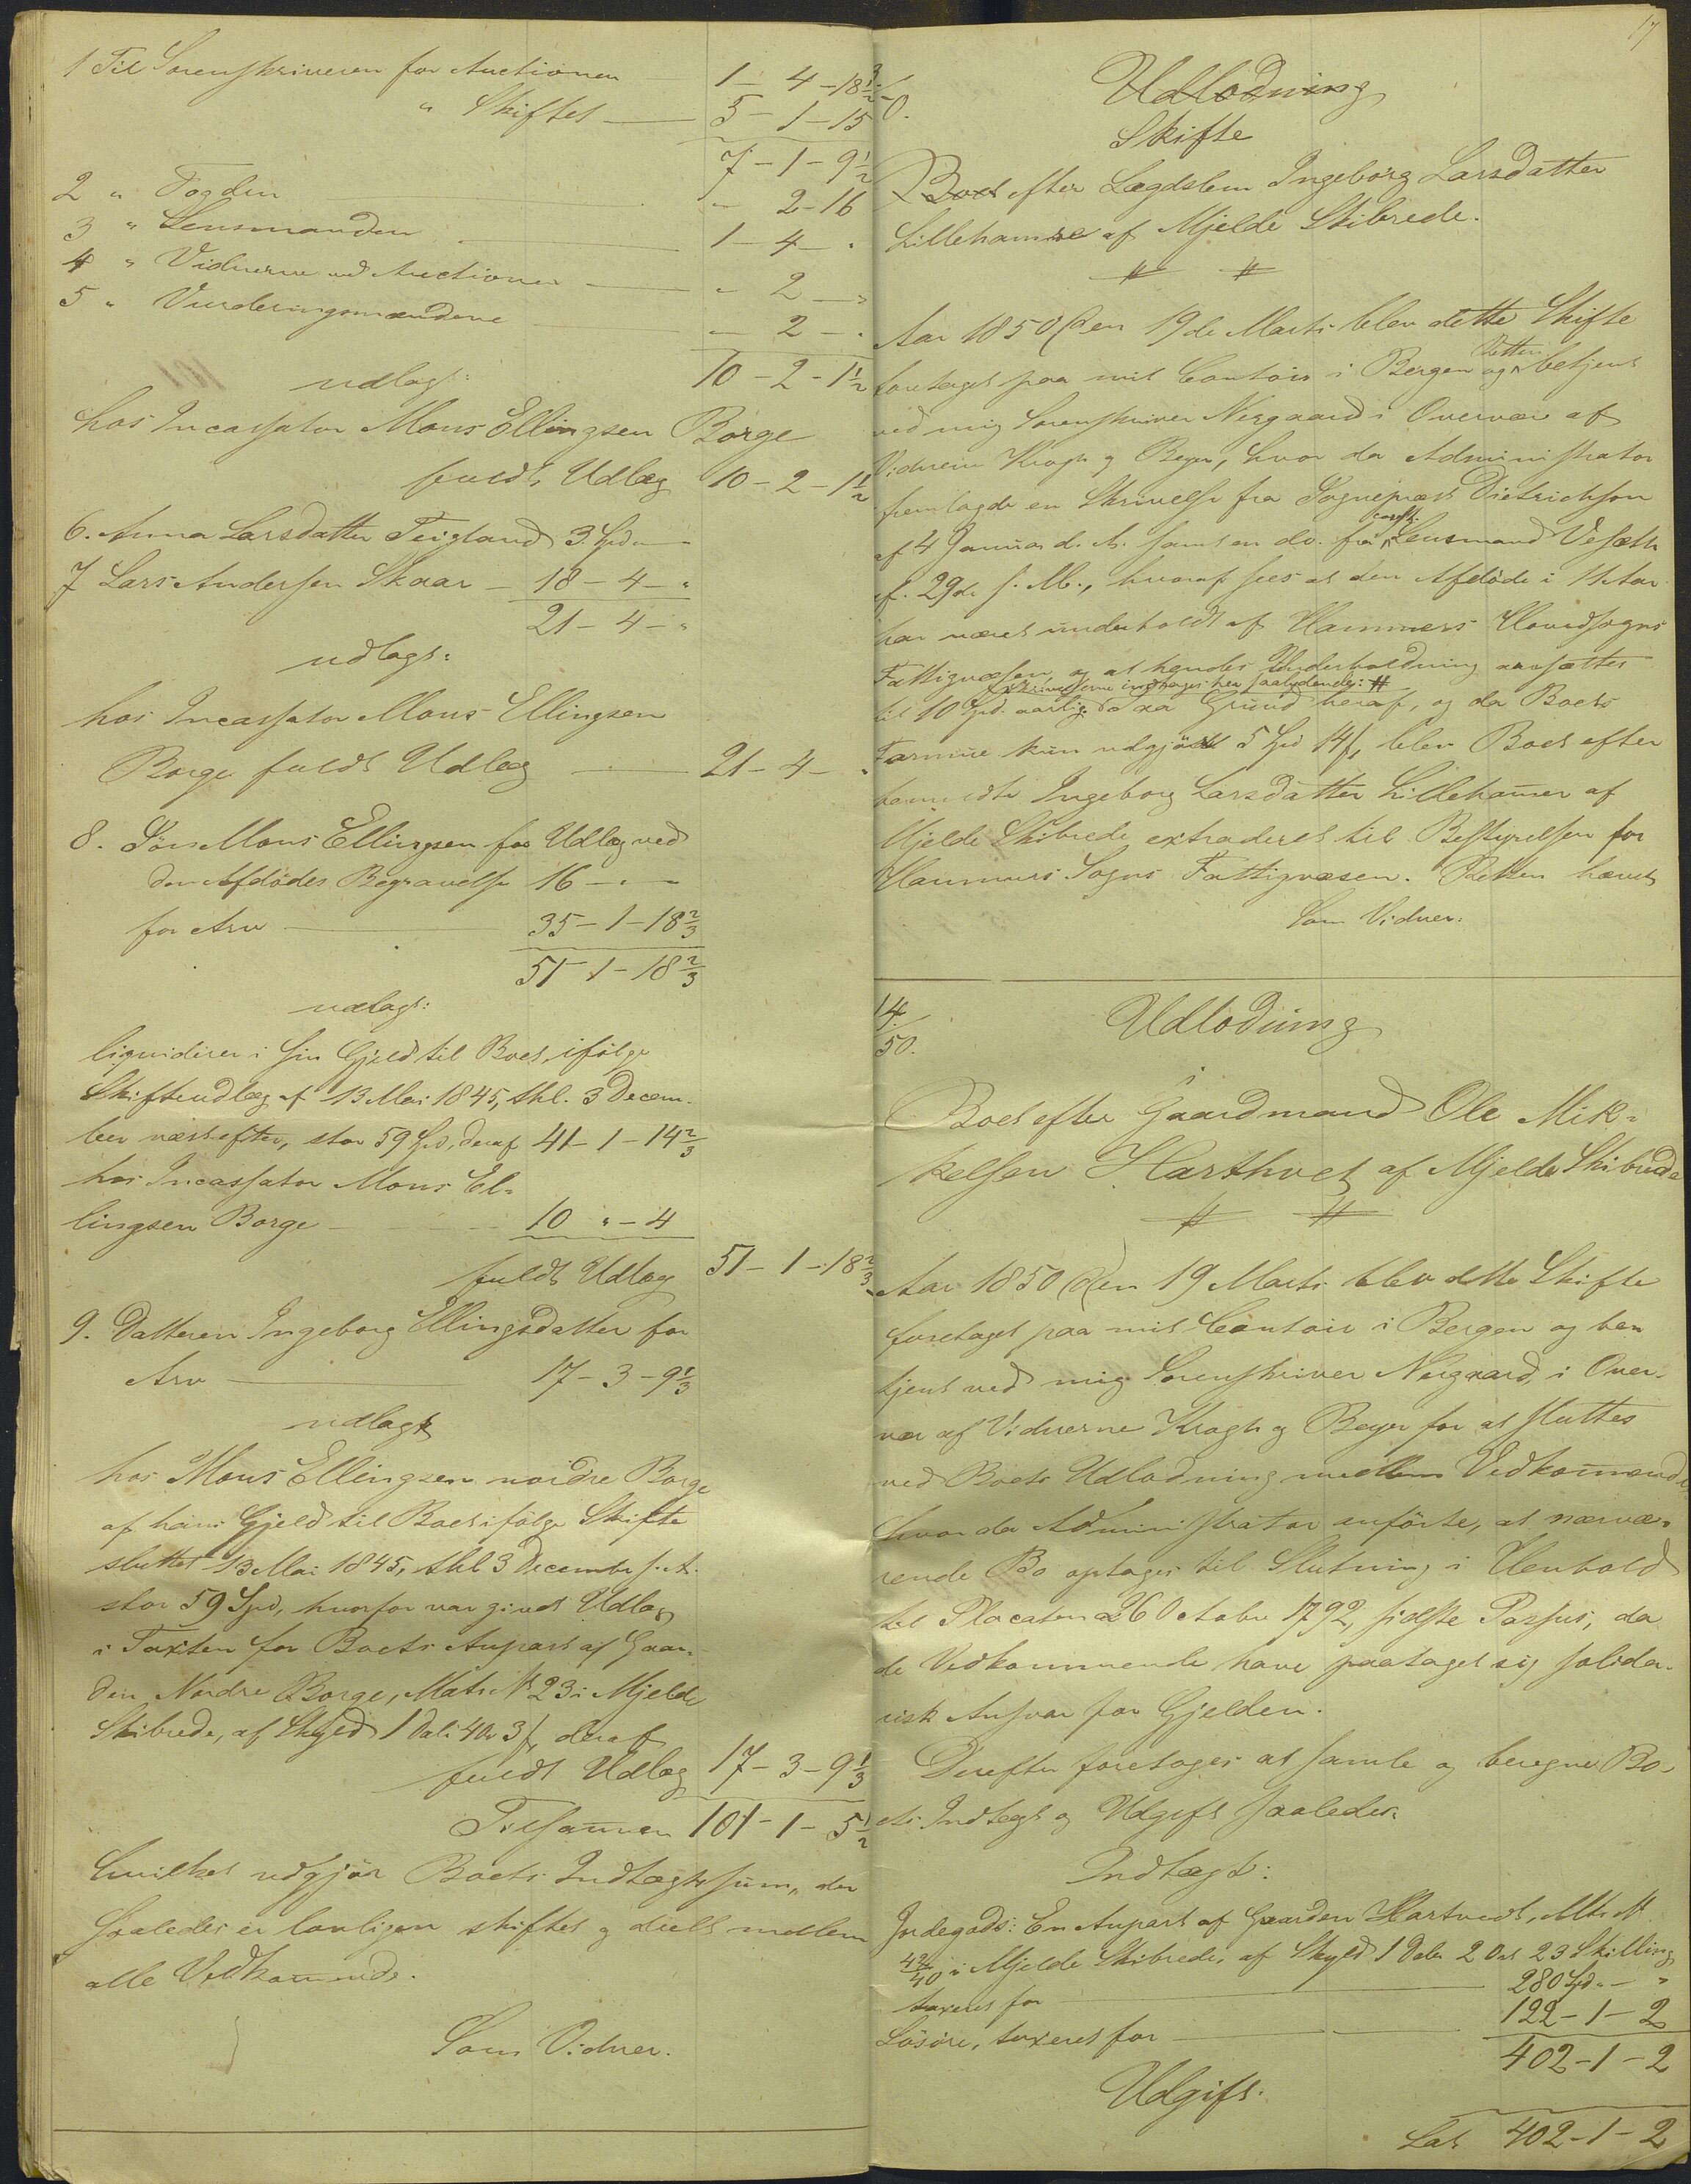 1 Til Sorenskriveren for Auctionen 1 - 4 - 18½
" Skiftet 5 - 1 - 15
7 - 1 - 9½
2 " Fogden " 2 - 16
3 " Lensmanden 1 - 4 - "
4 " Vidnerne ved Auctionen " 2 - "
5 " Vurderingsmændene - 2 - "
10 - 2 - 1½
udlagt:
hos Incassator Mons Ellingsen Borge
fuldt Udlæg 10 - 2 - 1½
6. Anna Larsdatter Teigland 3 Spd " -
7 Lars Andersen Skaar - 18 - 4 - "
21 - 4 - "
udlagt:
hos Incassator Mons Ellingsen
Borge fuldt Udlæg 21 - 4 - "
8. Søn Mons Ellingsen for Udlæg ved
den Afdødes Begravelse 16 - " -
for Arv 35 - 1 - 18⅔
51 - 1 - 18⅔
udlagt:
liqviderer i sin Gjeld til Boet, ifølge
Skifteudlæg af 13 Mai 1845, thl. 3 Decem-
ber næstefter, stor 59 Spd, deraf 41 - 1 - 14⅔
hos Incassator Mons El-
lingsen Borge 10 " - 4
fuldt Udlæg 51 - 1 - 18⅔
9. Datteren Ingeborg Ellingsdatter for
Arv 17 - 3 - 9⅓
udlagt
hos Mons Ellingsen nordre Borge
af hans Gjeld til Boet ifølge Skifte
sluttet 13 Mai 1845, thl 3 December s. A.
stor 59 Spd, hvorfor var givet Udlæg
i Taxten for Boets Anpart af Gaar-
den Nordre Borge, Matr. N 23 i Mjelde
Skibrede, af Skyld 1 Dalr 4 Ort 3 s, deraf
fuldt Udlæg 17 - 3 - 9⅓
Tilsammen 101 - 1 - 5½
hvilket udgjør Boets Indtægtssum, der
saaledes er lovligen skiftet og deelt mellem
alle Vedkommende.
Som Vidner.
17
Udlodning
Skifte
Boet efter Lægdslem Ingeborg Larsdatter
Lillehammer af Mjelde Skibrede.
Aar 1850 den 19de Marts blev dette Skifte
foretaget paa mit Contoir i Bergen og Retten betjent
ved mig Sorenskriver Nergaard i Overvær af
Vidnerne Kragh og Beyer, hvor da Administrator
fremlagde en Skrivelse fra Sognepræst Dietrichson
af 4 Januar d. A. samt en do. fra const. Lensmand Vesæth
af 29de s. M., hvoraf sees at den Afdøde i 11 Aar
har været underholdt af Hammers Hovedsogns
Fattigvæsen, og at hendes Underholdning ansættes
Skrivelserne indtages her saalydende: #
til 10 Spd. aarlig. Paa Grund heraf, og da Boets
Formue kun udgjør 5 Spd 14 s, blev Boet efter
bemeldte Ingeborg Larsdatter Lillehamer af
Mjelde Skibrede extraderet til Bestyrelsen for
Hammers Sogns Fattigvæsen. Retten hævet
Som Vidner:
14/50.
Udlodning
i
Boet efter Gaardmand Ole Mik-
kelsen Harthvet af Mjelde Skibrede
Aar 1850 den 19 Marts blev dette Skifte
foretaget paa mit Contoir i Bergen og be-
tjent ved mig Sorenskriver Nergaard, i Over-
vær af Vidnerne Kragh og Beyer for at sluttes
ved Boets Udlodning mellem Vedkommende,
hvor da Administrator anførte, at nærvæ-
rende Bo optages til Slutning i Henhold
til Placaten 26 October 1792, sidste Passus, da
de Vedkommende have paataget sig solida-
risk Ansvar for Gjelden.
Derefter foretages at samle og beregne Bo-
ets Indtægt og Udgift saaledes:
Indtægt:
Jordegods: En Anpart af Gaarden Hartvedt, Mtr. N
i Mjelde Skibrede, af Skyld 1 Daler 2 Ort 23 Skilling
taxeret for 280 Spd " - "
Løsøre, taxeret for 122 - 1 - 2
402 - 1 - 2
Udgift.
Lat 402 - 1 - 2